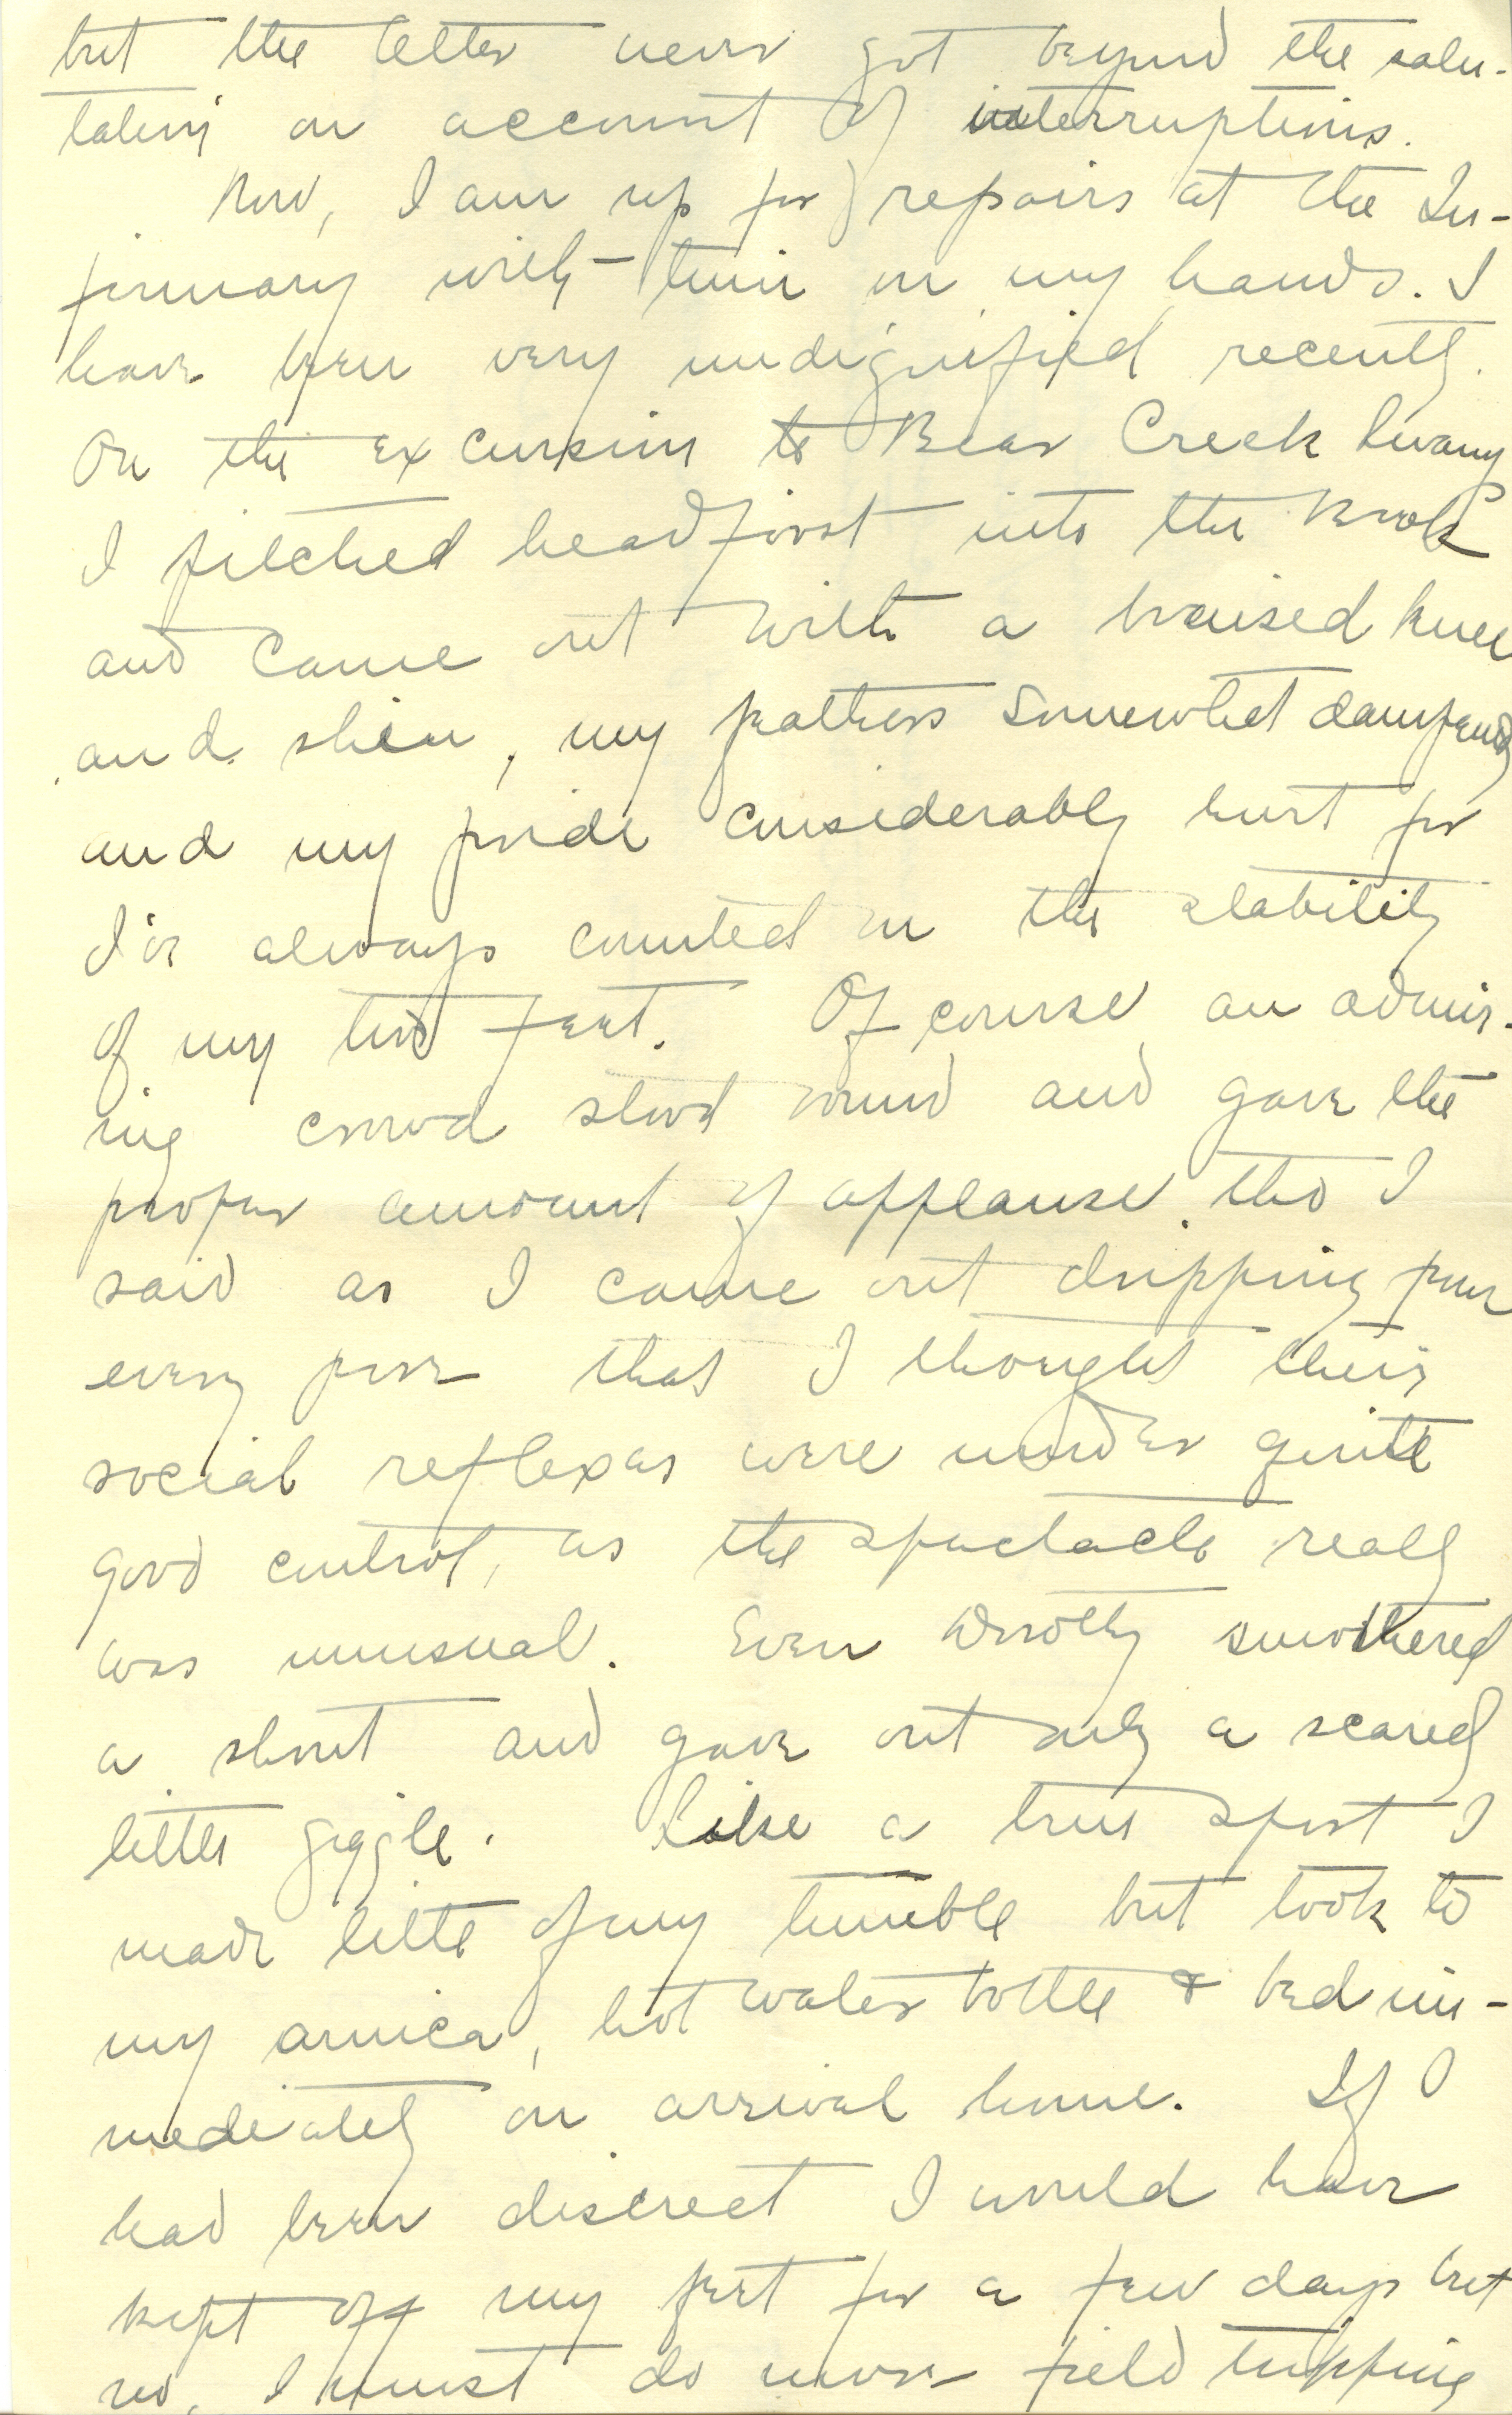 but the letter never got beyond the salu-
tation on account of interruptions.
Now, I am up for repairs at the In-
firmary with time on my hands. I
have been very undignified recently.
On the excursion to Bear Creek
I pitched headfirst into the brook
and came out with a bruised knee
and shin, my feathers somewhat dampened
and my pride considerably hurt for
I've always counted on the stability
of my two feet. Of course, an admir-
ing crowd stood round and gave the
proper amount of applause, tho I
said as I came out dripping from
every pore that I thought their
social reflexes were under quite
good control, as the spectacle really
was unusual. Even Dorothy smothered
a shout and gave out only a scared
little giggle. Like a true sport I
made little of my tumble but took to
my arnica, hot water bottle & bed im-
mediately on arrival home. If I
had been discreet I would have
kept off my feet for a few days but
no, I must do more field tripping